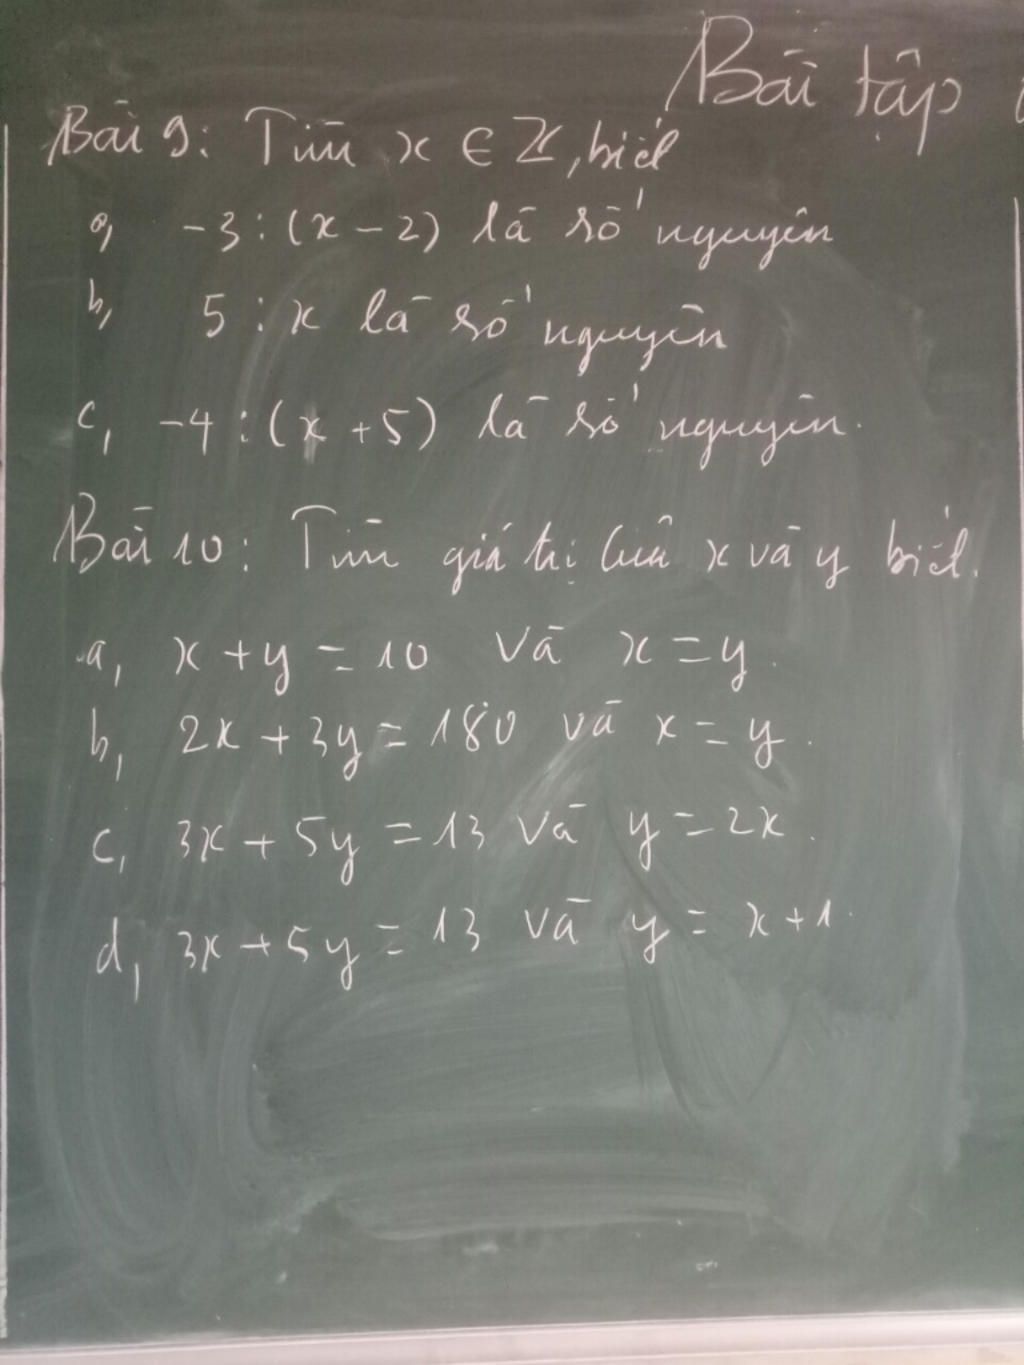 Bài tập
Bài 9: Tìm x ∈ Z, biết
a, -3 : (x - 2) là số nguyên
b, 5 : x là số nguyên
c, -4 : (x + 5) là số nguyên.
Bài 10: Tìm giá trị của x và y biết.
a, x + y = 10 và x = y.
b, 2x + 3y = 180 và x = y.
c, 3x + 5y = 13 và y = 2x.
d, 3x + 5y = 13 và y = x + 1.